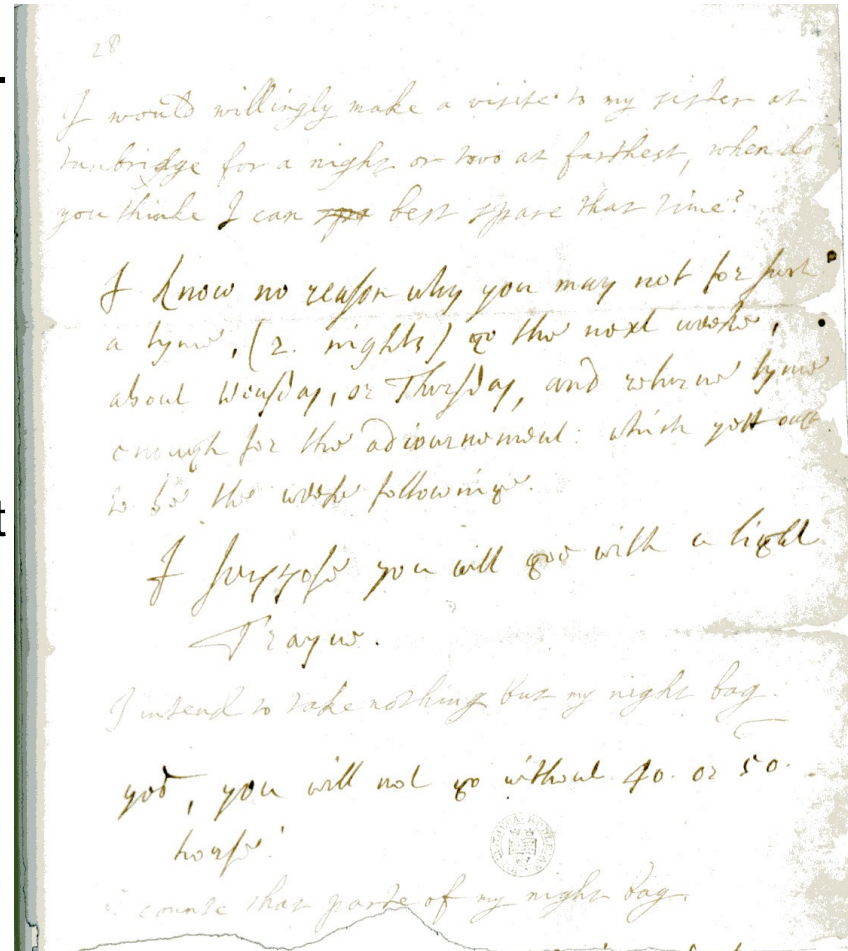 28
54
I would willingly make a visite to my sister at
tunbridge for a night or two at farthest, when do
you thinke I can best spare that time?
I know no reason why you may not for such
a tyme, (2. nights) go the next weeke,
about Wensday, or Thursday, and returne tyme
enough for the adiournement: which yett
to be the weeke followinge.
I suppose you will goe with a light
Trayne.
I intend to take nothing but my night bag.
yes, you will not go without 40. or 50.
horse!
I counte that parte of my night bag.